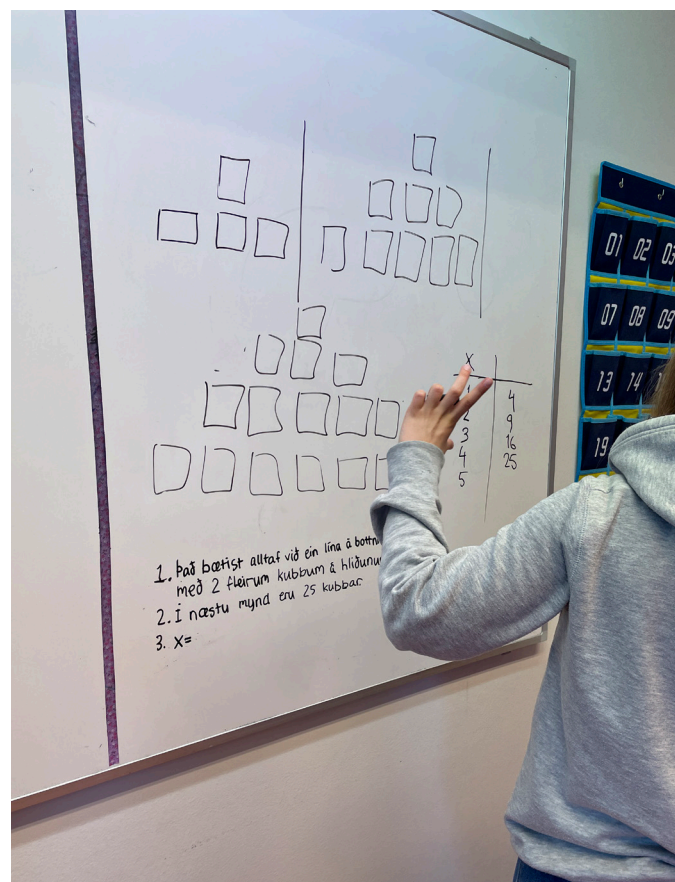 x
4
2 9
3 16
4 25
5
1. Það bætist alltaf við ein lína á
með 2 fleirum kubbum á
2. Í næstu mynd eru 25 kubbar
3. x=
01 02 03
07 08 09
13 14
19